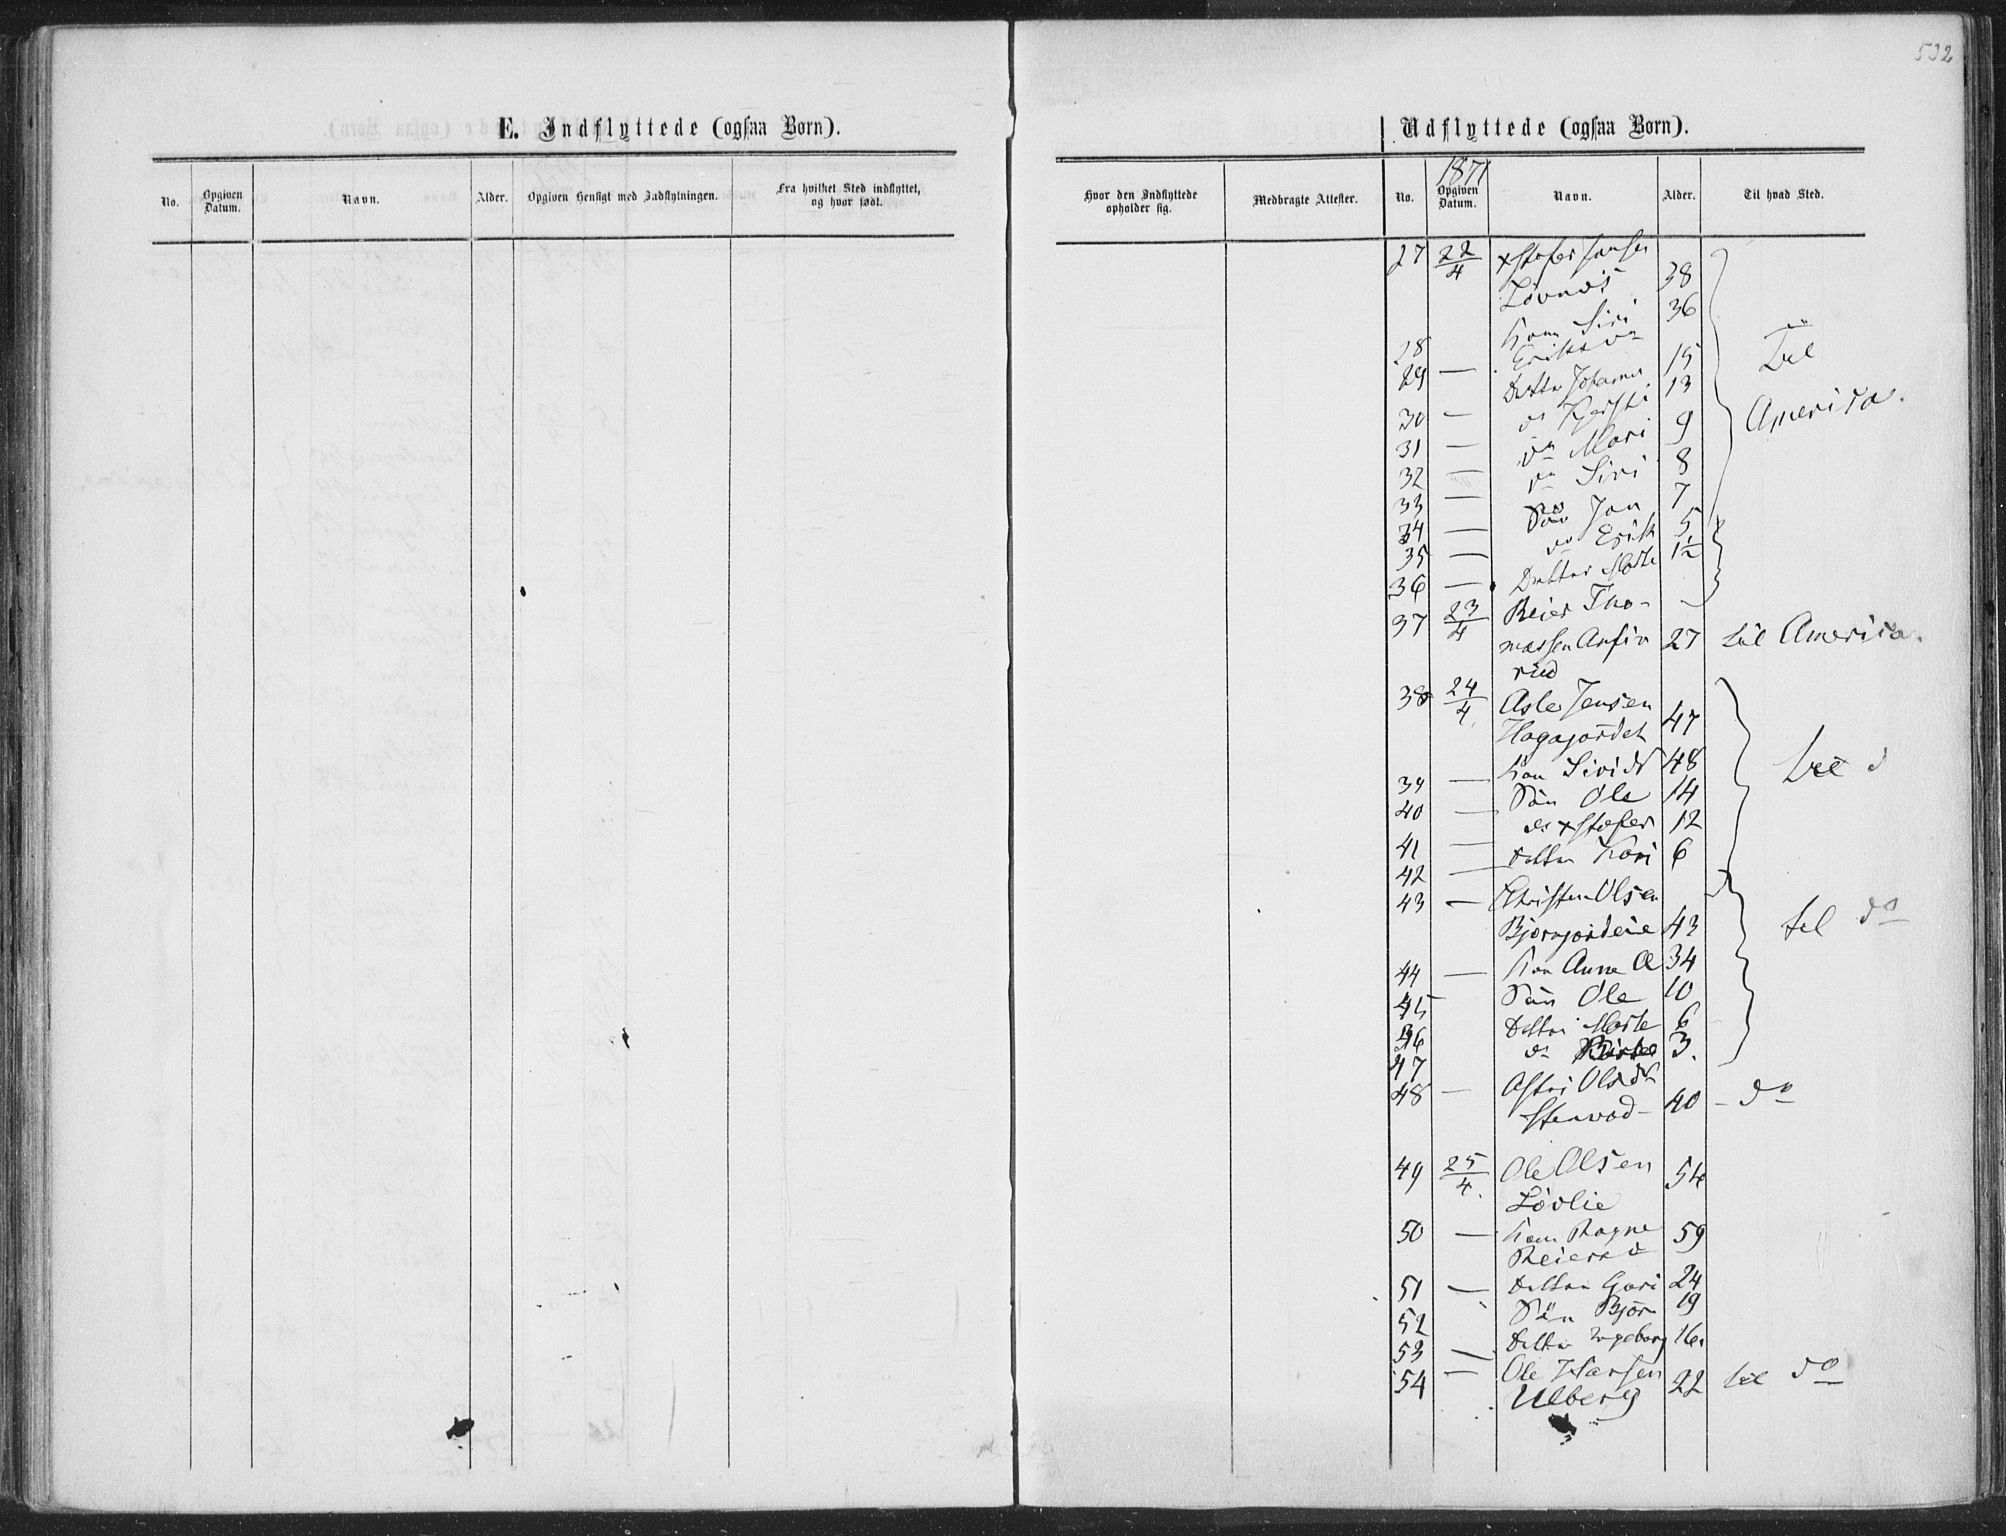 532
E. Indflyttede (ogsaa Børn).
Udflyttede (ogsaa Børn).
No.
Opgiven Datum.
Navn.
Alder.
Opgiven Hensigt med Indflytningen.
Fra hvilket Sted indflyttet, og hvor født.
Hvor den Indflyttede opholder sig.
Medbragte Attester.
No.
1871
Opgiven Datum.
Navn.
Alder.
Til hvad Sted.
27 22/4 xstofer
38
28 Kone Siri 36
29 — Datter 15
30 — do Kjersti 13
31 — do Mari 9
32 — do Siri 8
33 — Søn Jon 7
34 — do Erik 5
35 — Datter 1½
36 —
Til
America.
37 23/4 Reier Tho-
massen 27 til America.
rud
38 24/4 Asle Jensen
Hagajordet 47
39 — Kon Siri 48
40 — Søn Ole 14
41 — do xstofer 12
42 — Datter Kari 6
til d
43 — Christen Olsen
43
44 — Kon Anne 34
45 Søn Ole 10
46 Datter Marte 6
47 do 3.
til do
48 — Olsdr
40 - do
49 25/4. Ole Olsen
Lövlie 54
50 — Kone Ragne 59
Reiersd
51 — Datter Guri 24
52 Søn Bjør 19
53 — Datter Ingeborg 16.
54 — Ole
Ulberg 22 til do